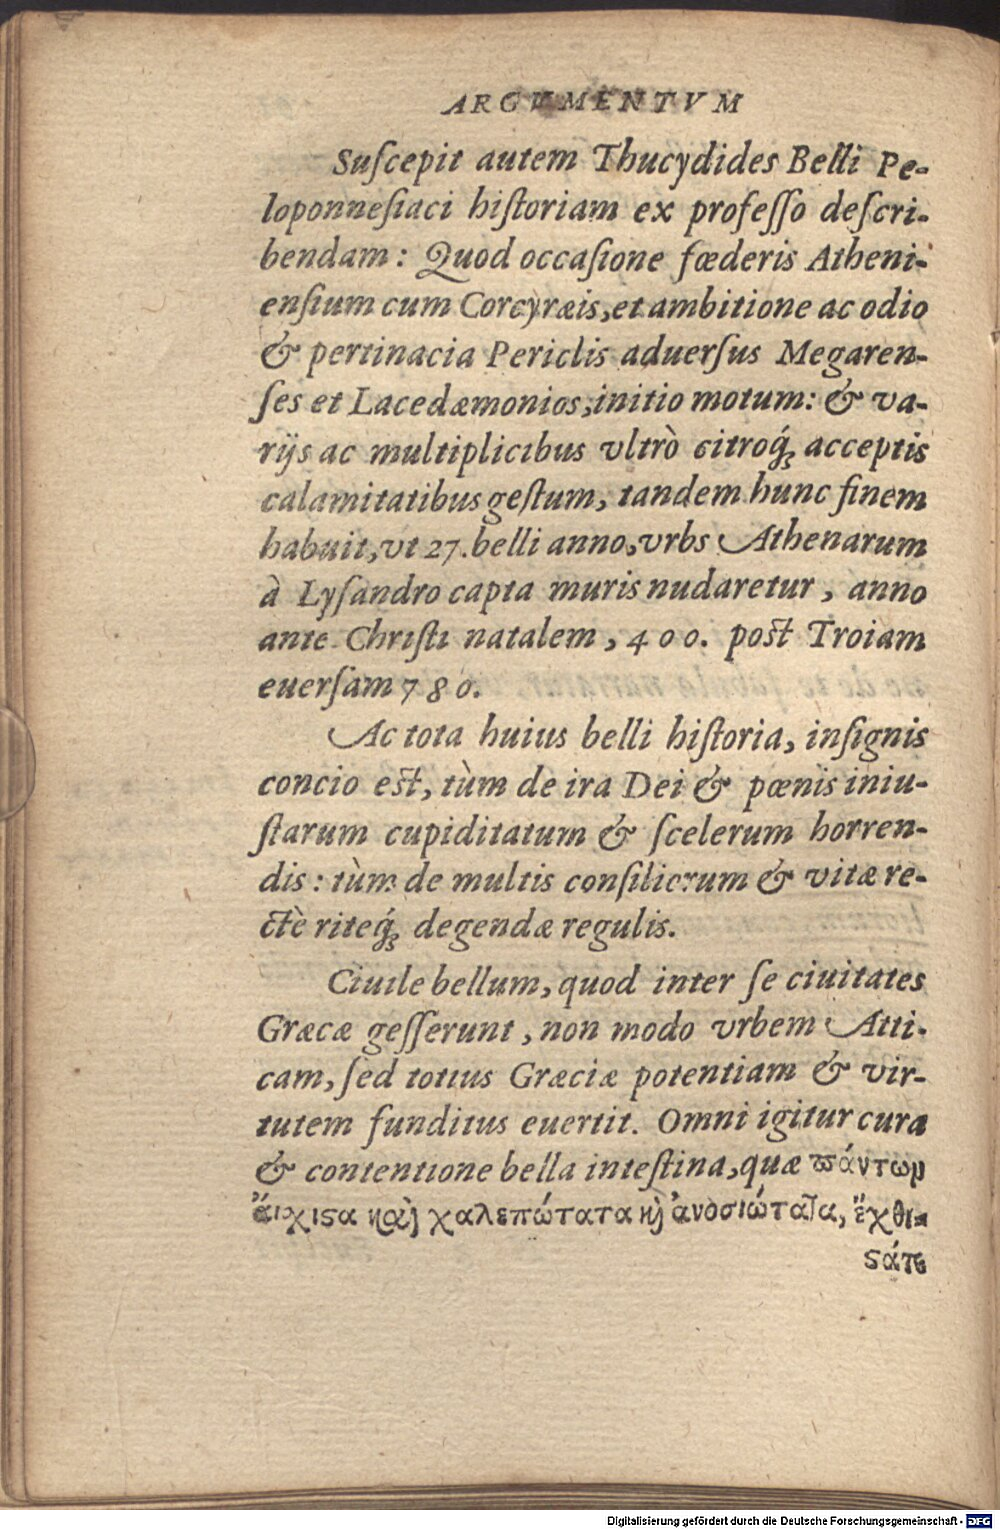 ARGUMENTVM
Suſcepit autem Thucydides Belli Pe-
loponneſiaci hiſtoriam ex profeſſo deſcri-
bendam: Quod occaſione fœderis Atheni-
enſium cum Corcyræis, et ambitione ac odio
& pertinacia Periclis aduerſus Megaren-
ſes et Lacedæmonios, initio motum: & va-
rijs ac multiplicibus vltrò citroq́ꝫ acceptis
calamitatibus geſtum, tandem hunc finem
habuit, vt 27. belli anno, vrbs Athenarum
à Lyſandro capta muris nudaretur, anno
ante Chriſti natalem, 400. poſt Troiam
euerſam 780.
Ac tota huius belli hiſtoria, inſignis
concio eſt, tùm de ira Dei & pœnis iniu-
ſtarum cupiditatum & ſcelerum horren-
dis: tùm de multis conſiliorum & vitæ re-
ctè riteq́ꝫ degendæ regulis.
Ciuile bellum, quod inter ſe ciuitates
Græcæ geſſerunt, non modo vrbem Atti-
cam, ſed totius Græciæ potentiam & vir-
tutem funditus euertit. Omni igitur cura
& contentione bella inteſtina, quæ ϖάντων
ἄιχιϛα καὶ χαλεπώτατα κὶ ἀνοσιώτατα, ἔχθι-
ϛάτε
Digitalisierung gefördert durch die Deutsche Forschungsgemeinschaft - DFG